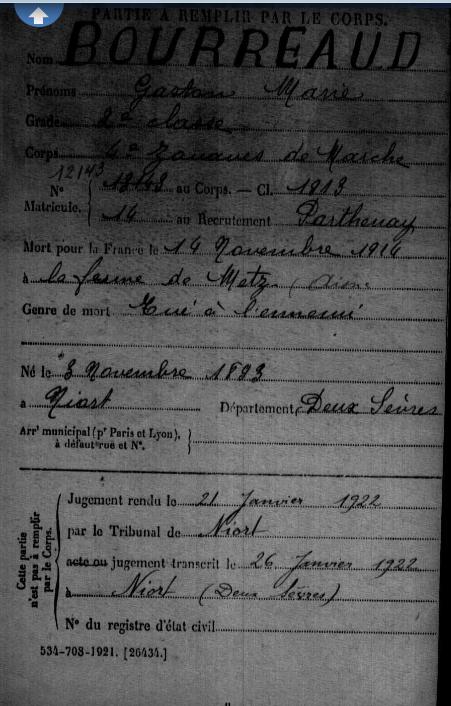 PARTIE À REMPLIR PAR LE CORPS.
Nom BOURREAUD
Prénoms Gaston Marie
Grade 2e classe
Corps 4e Zouaves de Marche
12143
N° au Corps. — Cl. 1913
Matricule. 14 au Recrutement Parthenay
Mort pour la France le 14 Novembre 1914
à la ferme de Metz (Aisne
Genre de mort Tué à l'ennemi
Né le 3 Novembre 1893
à Niort Département Deux Sèvres
Arrt municipal (pr Paris et Lyon),
à défaut rue et N°.
Cette partie
n'est pas à remplir
par le Corps.
Jugement rendu le 21 Janvier 1922
par le Tribunal de Niort
acte ou jugement transcrit le 26 Janvier 1922
à Niort (Deux Sèvres)
N° du registre d'état civil
534-708-1921. [26434.]